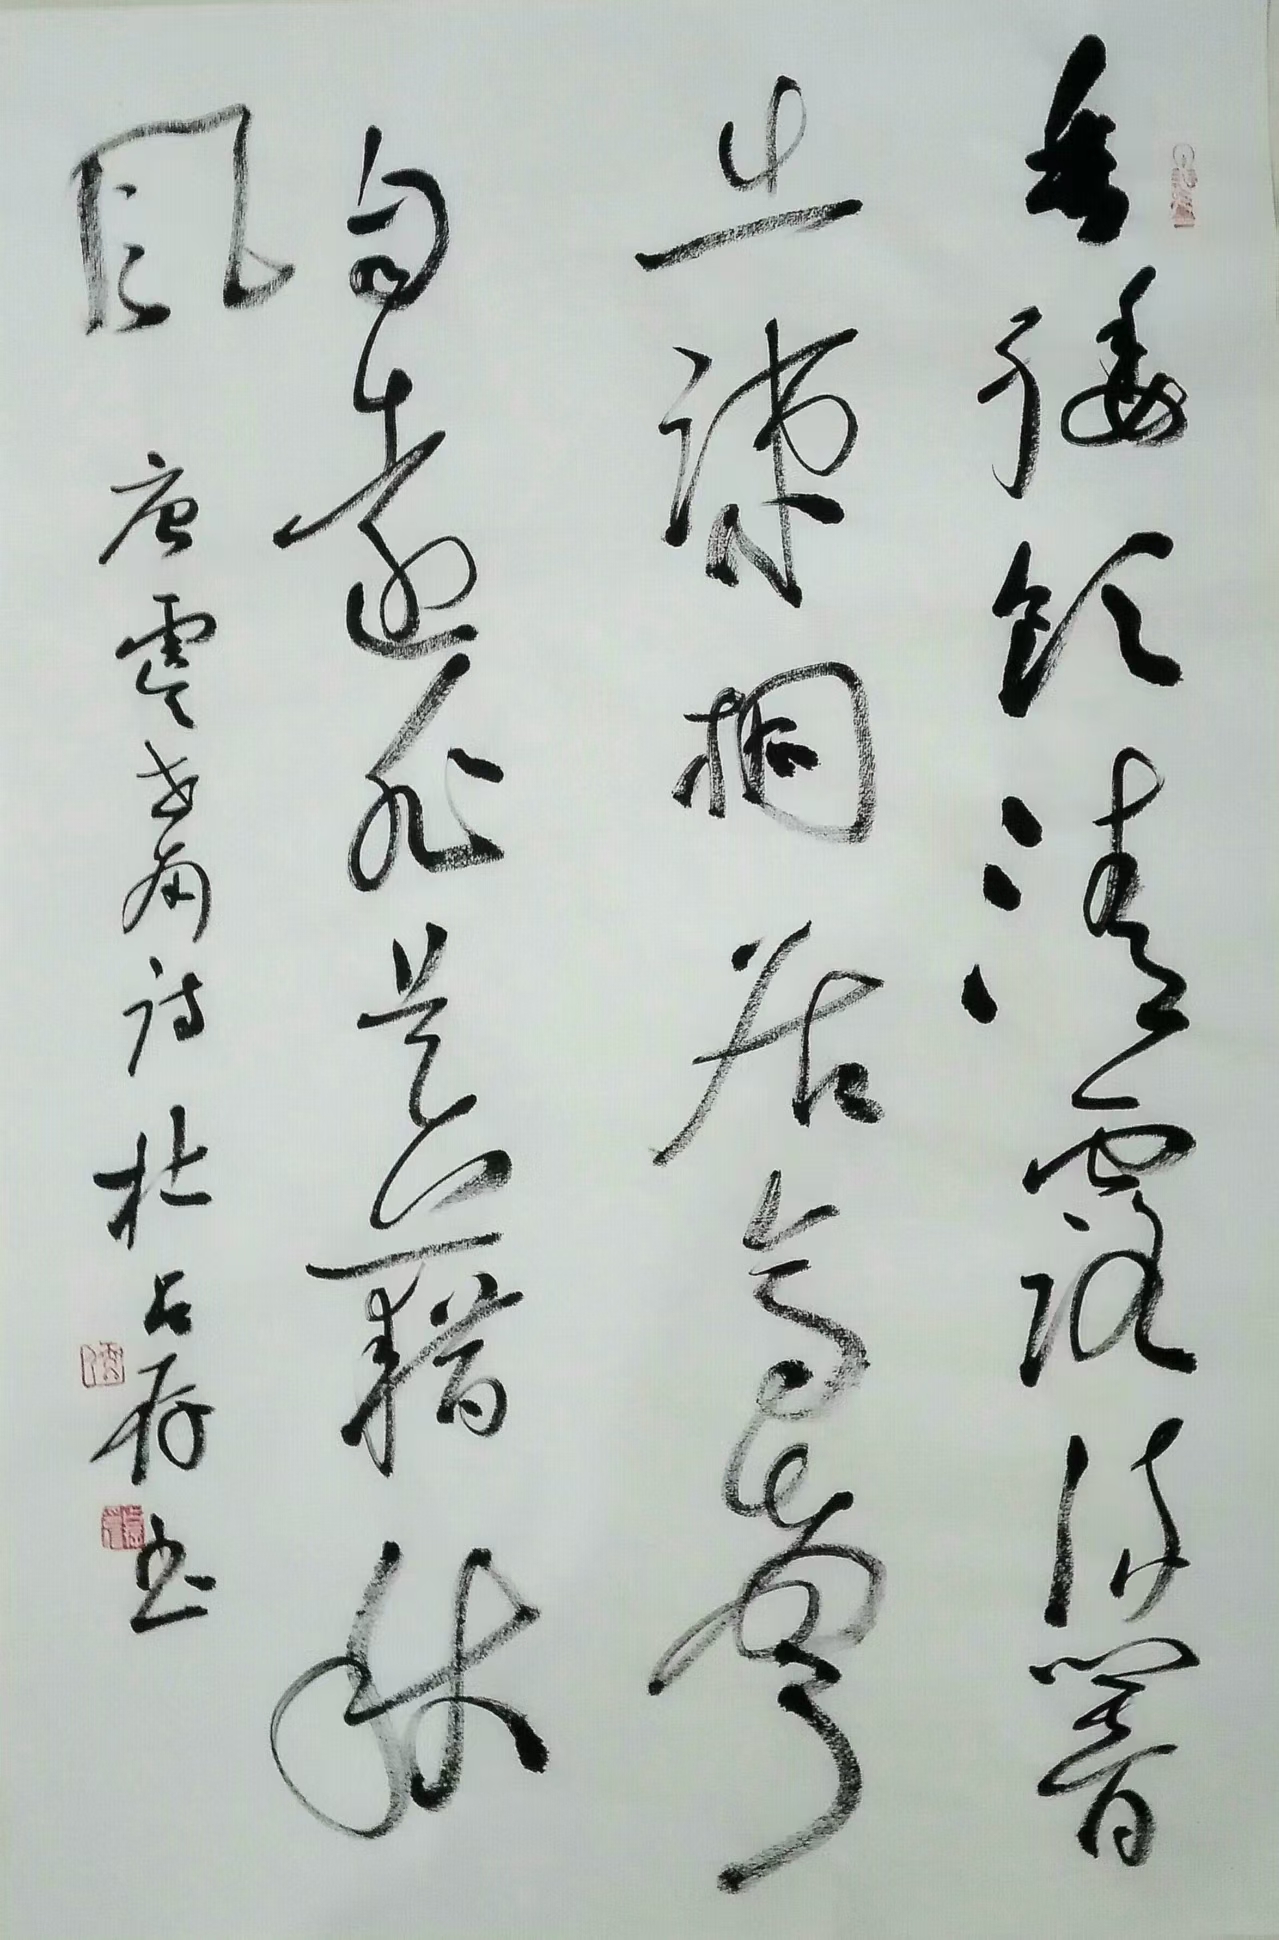 垂緌飲清露流響
出疏桐居高聲
自遠非是藉秋
風 唐虞世南詩 杜占存書